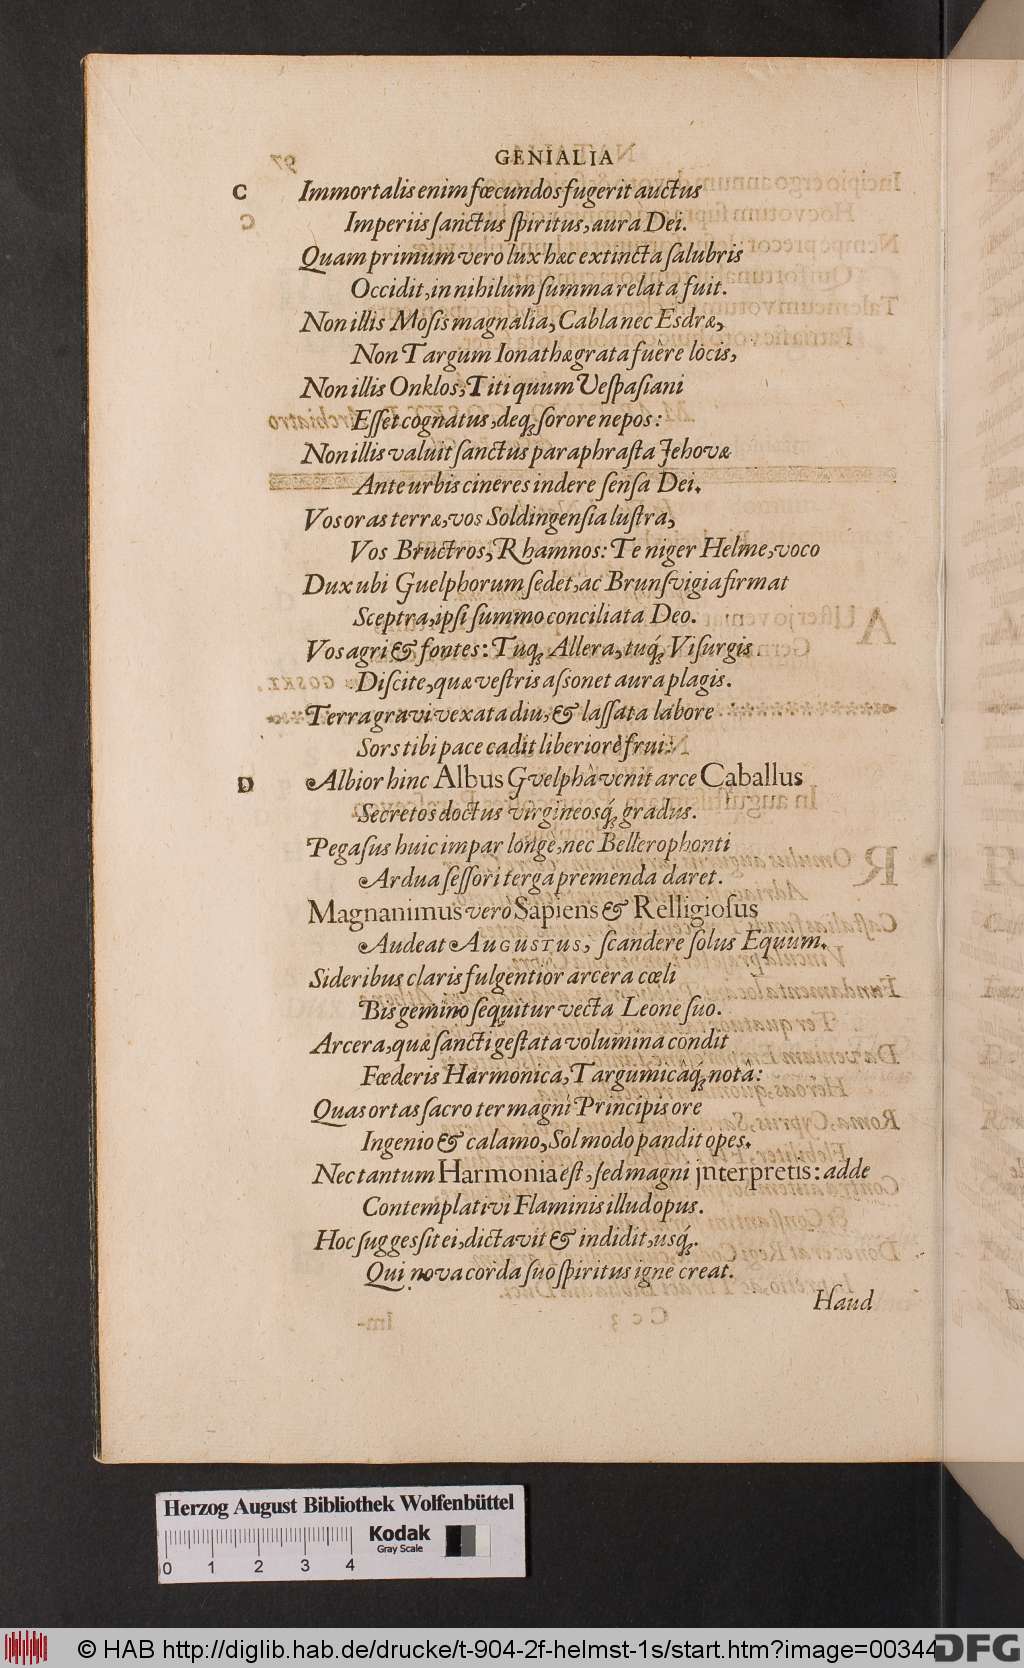 GENIALIA
C Immortalis enim fœcundos fugerit auctus
Imperiis ſanctus ſpiritus, aura Dei.
Quam primum vero lux hæc extincta ſalubris
Occidit, in nihilum ſumma relata fuit.
Non illis Moſis magnalia, Cabla nec Esdræ,
Non Targum Ionathæ grata fuêre locis,
Non illis Onklos, Titi quum Veſpaſiani
Eſſet cognatus, deq́ ſorore nepos:
Non illis valuit ſanctus paraphraſta Jehovæ
Ante urbis cineres indere ſenſa Dei.
Vos oras terræ, vos Soldingenſia luſtra,
Vos Bructros, Rhamnos: Te niger Helme, voco
Dux ubi Guelphorum ſedet, ac Brunſvigia firmat
Sceptra, ipſi ſummo conciliata Deo.
Vos agri & fontes: Tuq́ Allera, tuq́ Viſurgis
Diſcite, quæ veſtris aſsonet aura plagis.
Terra gravi vexata diu, & laſſata labore
Sors tibi pace cadit liberiorè frui:
D Albior hinc Albus Gvelphâ venit arce Caballus
Secretos doctus virgineosq́ gradus.
Pegaſus huic impar longe, nec Bellerophonti
Ardua ſeſſori terga premenda daret.
Magnanimus vero Sapiens & Relligioſus
Audeat AUGUSTUS, ſcandere ſolus Equum.
Sideribus claris fulgentior arcera cœli
Bis gemino ſequitur vecta Leone ſuo.
Arcera, quæ ſancti geſtata volumina condit
Fœderis Harmonica, Targumicâq́ notâ:
Quas ortas ſacro ter magni Principis ore
Ingenio & calamo, Sol modo pandit opes.
Nec tantum Harmonia eſt, ſed magni jnterpretis: adde
Contemplativi Flaminis illud opus.
Hoc ſuggesſit ei, dictavit & indidit, usq́
Qui nova corda ſuo ſpiritus igne creat.
Haud
Herzog August Bibliothek Wolfenbüttel
Kodak
Gray Scale
0 1 2 3 4
© HAB http://diglib.hab.de/drucke/t-904-2f-helmst-1s/start.htm?image=00344
DFG